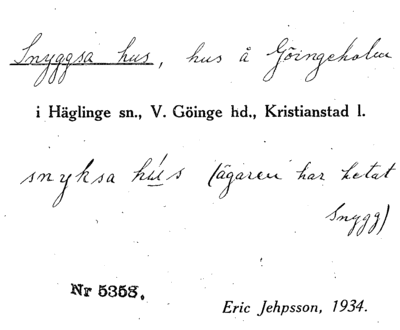 Snyggsa hus, hus å Göingeholm
i Häglinge sn., V. Göinge hd., Kristianstad l.
snyksa hús (ägaren har hetat
Snygg)
Nr 5358.
Eric Jehpsson, 1934.